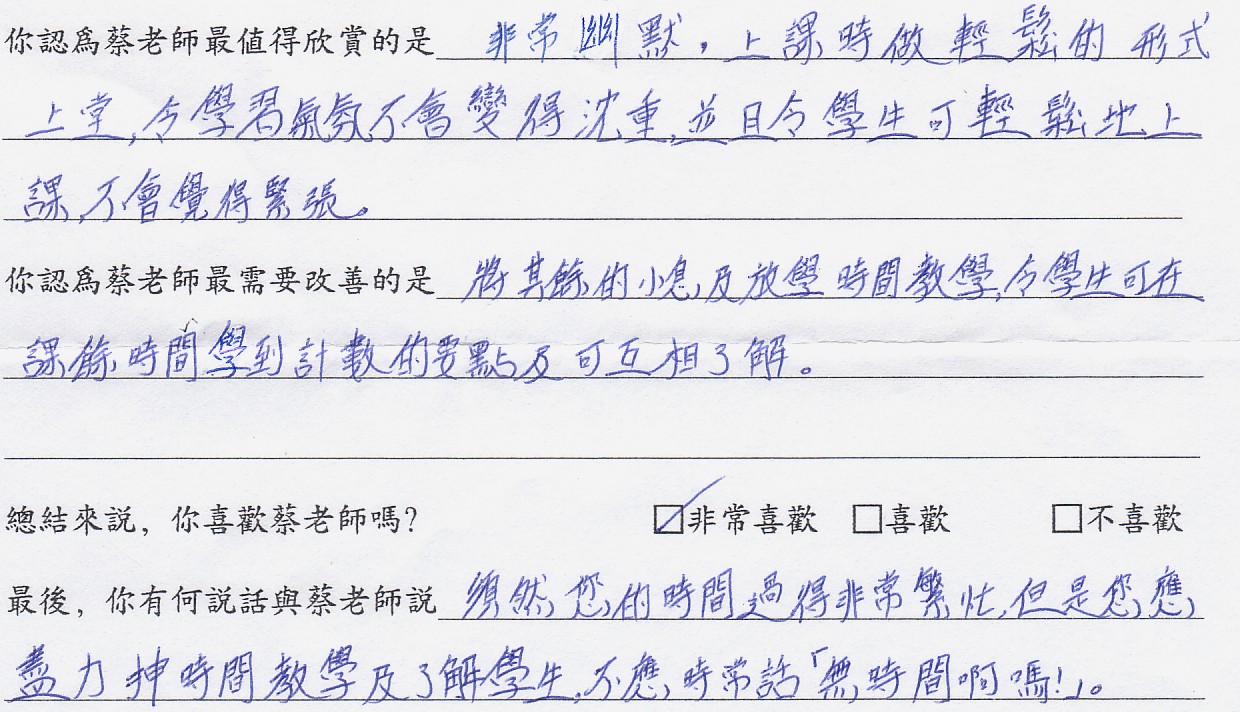 你認為蔡老師最值得欣賞的是 非常幽默，上課時做輕鬆的形式
上堂，令學習氣氛不會變得沈重，並且令學生可輕鬆地上
課，不會覺得緊張。
你認為蔡老師最需要改善的是 將其餘的小息及放學時間教學，令學生可在
課餘時間學到計數的要點及可互相了解。
總結來説，你喜歡蔡老師嗎？ ☑非常喜歡 □喜歡 □不喜歡
最後，你有何説話與蔡老師説 須然您的時間過得非常繁忙，但是您應
盡力抻時間教學及了解學生，不應時常話「無時間啊嗎！」。